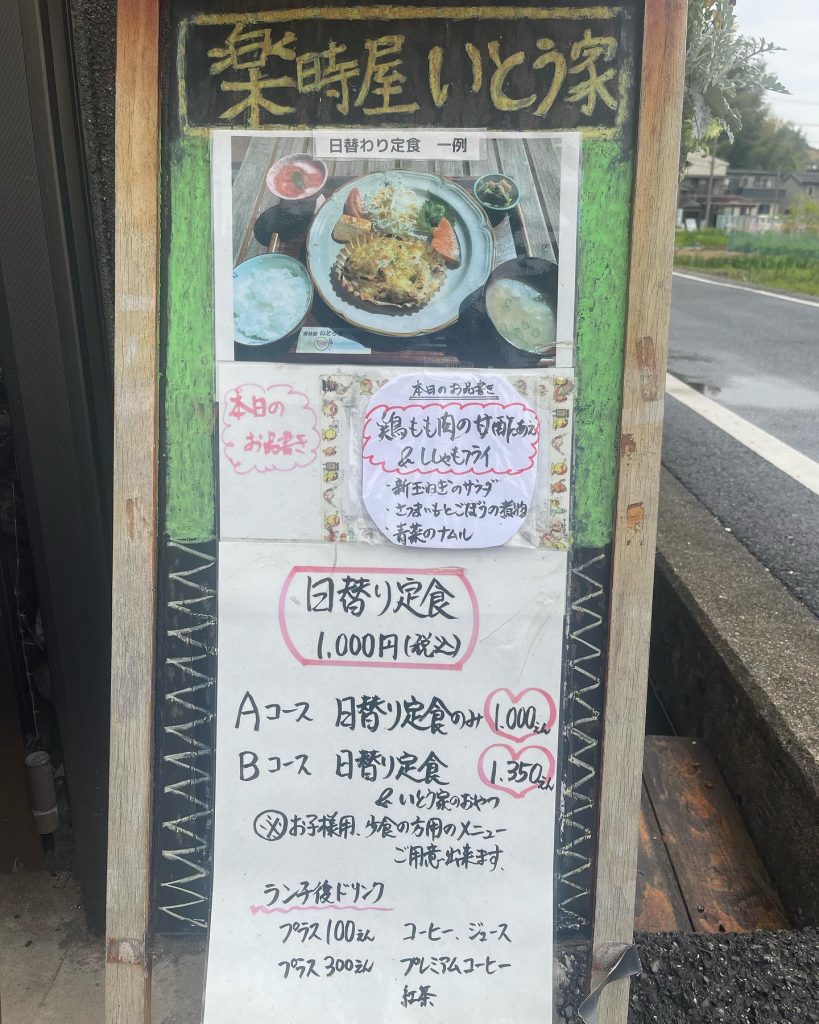 楽時屋 いとう家
日替わり定食 一例
本日の
お品書き
本日のお品書き
鶏もも肉の甘酢あえ
& ししゃもフライ
・新玉ねぎのサラダ
・さつまいもとごぼうの煮物
・青菜のナムル
日替り定食
1,000円(税込)
Aコース 日替り定食のみ 1.000えん
Bコース 日替り定食 1.350えん
& いとう家のおやつ
㋱ お子様用、少食の方用のメニュー
ご用意出来ます。
ランチ後ドリンク
プラス100えん コーヒー、ジュース
プラス300えん プレミアムコーヒー
紅茶